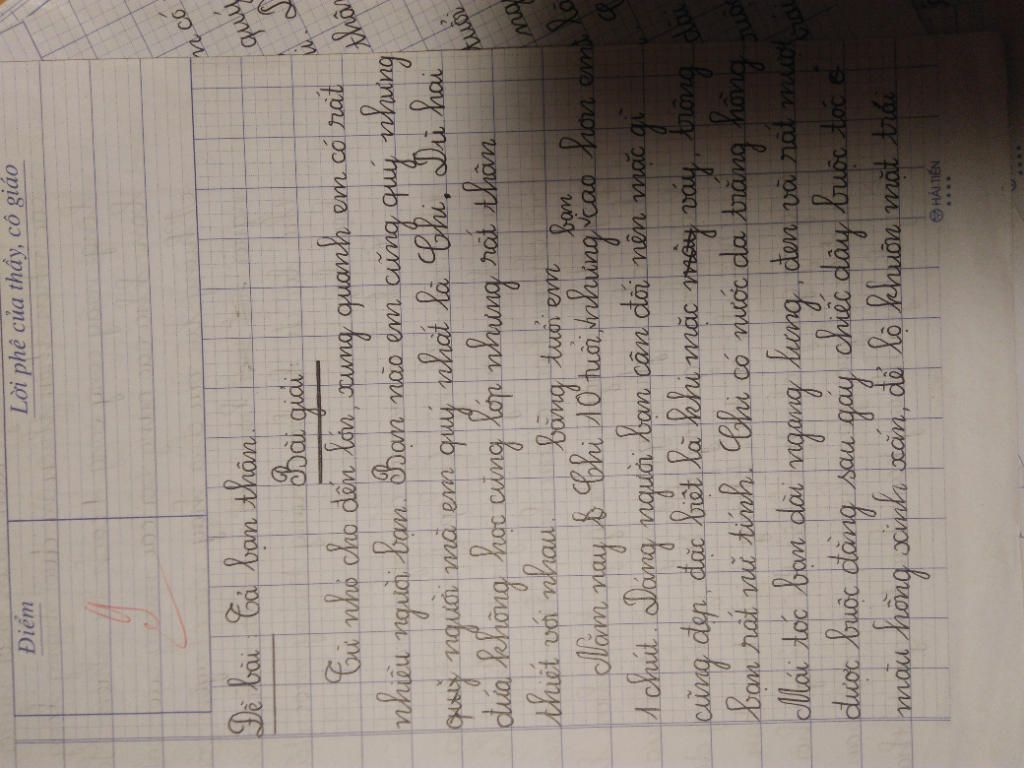 Điểm
Lời phê của thầy, cô giáo
9
Đề bài: Tả bạn thân.
Bài giải
Từ nhỏ cho đến lớn, xung quanh em có rất
nhiều người bạn. Bạn nào em cũng quý nhưng
quý người mà em quý nhất là Chi. Dù hai
đứa không học cùng lớp nhưng rất thân
thiết với nhau.
Năm nay Chi 10 tuổi, bằng tuổi em nhưng bạn cao hơn em
1 chút. Dáng người bạn cân đối nên mặc gì
cũng đẹp, đặc biệt là khi mặc váy, trông
bạn rất nữ tính. Chi có nước da trắng hồng.
Mái tóc bạn dài ngang lưng, đen và rất mượt
được buộc đằng sau gáy chiếc dây buộc tóc
màu hồng xinh xắn, để lộ khuôn mặt trái
HẢI TIẾN